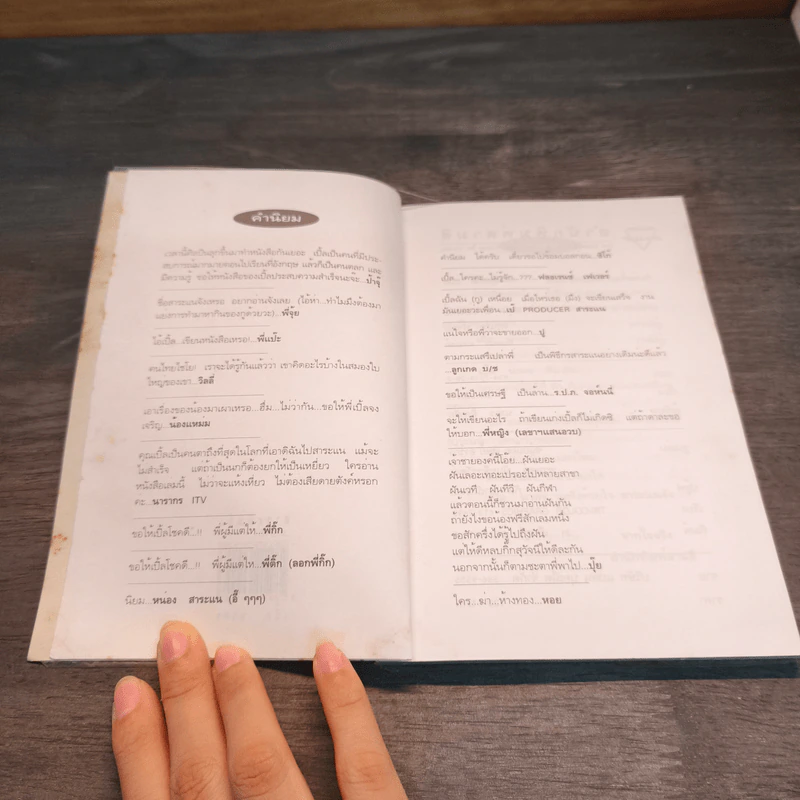 คำนิยม
เวลานี้ศิลปินลุกขึ้นมาทำหนังสือกันเยอะ เปิ้ลเป็นคนที่มีประ-
สบการณ์มากมายตอนไปเรียนที่อังกฤษ แล้วก็เป็นคนตลก และ
มีความรู้ ขอให้หนังสือของเปิ้ลประสบความสำเร็จนะจ๊ะ...ป้าจุ๊
ชื่อสาระแนจังเหรอ อยากอ่านจังเลย (ไอ้ห่า...ทำไมมึงต้องมา
แย่งการทำมาหากินของกูด้วยวะ)...พี่จุ้ย
ไอ้เปิ้ล...เขียนหนังสือเหรอ!...พี่แปะ
คนไทยไชโย! เราจะได้รู้กันแล้วว่า เขาคิดอะไรบ้างในสมองใบ
ใหญ่ของเขา...วิลลี่
เอาเรื่องของน้องมาเผาเหรอ...ฮึ่ม...ไม่ว่ากัน...ขอให้พี่เปิ้ลจง
เจริญ...น้องแหมม
คุณเปิ้ลเป็นคนตาถึงที่สุดในโลกที่เอาดิฉันไปสาระแน แม้จะ
ไม่สำเร็จ แต่ถ้าเป็นนกก็ต้องยกให้เป็นเหยี่ยว ใครอ่าน
หนังสือเล่มนี้ ไม่ว่าจะแห่งเหี่ยว ไม่ต้องเสียดายตังค์หรอก
คะ...นารากร ITV
ขอให้เปิ้ลโชคดี...!! พี่ผู้มีแต่ให้...พี่กิ๊ก
ขอให้เปิ้ลโชคดี...!! พี่ผู้มีแต่ให้...พี่ติ๊ก (ลอกพี่กิ๊ก)
นิยม...หน่อง สาระแน (อี๊ ๆๆๆ)
คำนิยม ได้ครับ เดี๋ยวขอไปซ้อมบอลก่อน...ซิโก้
เปิ้ล...ใครคะ...ไม่รู้จัก...???...ฟลอเรนซ์ เฟเวอร์
เปิ้ลฉัน (กู) เหนื่อย เมื่อไหร่เธอ (มึง) จะเขียนเสร็จ งาน
มันเยอะยวะเพื่อน...เป้ PRODUCER สาระแน
แน่ใจหรือพี่ว่าจะขายออก...ปู
ตามกระแสรึเปล่าพี่ เป็นพิธีกรสาระแนอย่างเดิมนะดีแล้ว
...ลูกเกด บ/ช
ขอให้เป็นเศรษฐี เป็นล้าน...ร.ป.ภ. จอห์นนี่
จะให้เขียนอะไร ถ้าเขียนเก่งเปิ้ลก็ไม่เกิดซิ แต่ถ้าคาละขอ
ให้บอก...พี่หญิง (เลขาฯแสนอวบ)
เจ้าชายองค์นี้โอ๊ย...ฝันเยอะ
ฝันเลอะเทอะเปรอะไปหลายสาขา
ฝันเวที ฝันทีวี ฝันกีฬา
แล้วตอนนี้ก็ชวนมาอ่านฝันกัน
ถ้ายังไงขอน้องฟรีสักเล่มหนึ่ง
ขอสักครึ่งได้รู้ไปถึงฝัน
แต่ให้ดีหลบกิ๊กสุวัจนีให้ดีละกัน
นอกจากนั้นก็ตามชะตาพี่พาไป...ปุ๊ย
ใคร...ฆ่า...ห้างทอง...หอย